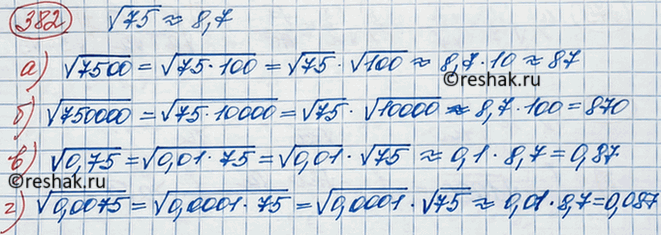 382 √75 ≈ 8,7
а) √7500 = √75·100 = √75 · √100 ≈ 8,7·10 ≈ 87
©reshak.ru
б) √750000 = √75·10000 = √75 · √10000 ≈ 8,7·100 = 870
в) √0,75 = √0,01·75 = √0,01 · √75 ≈ 0,1·8,7 = 0,87
©reshak.ru
г) √0,0075 = √0,0001·75 = √0,0001 · √75 ≈ 0,01·8,7 = 0,087